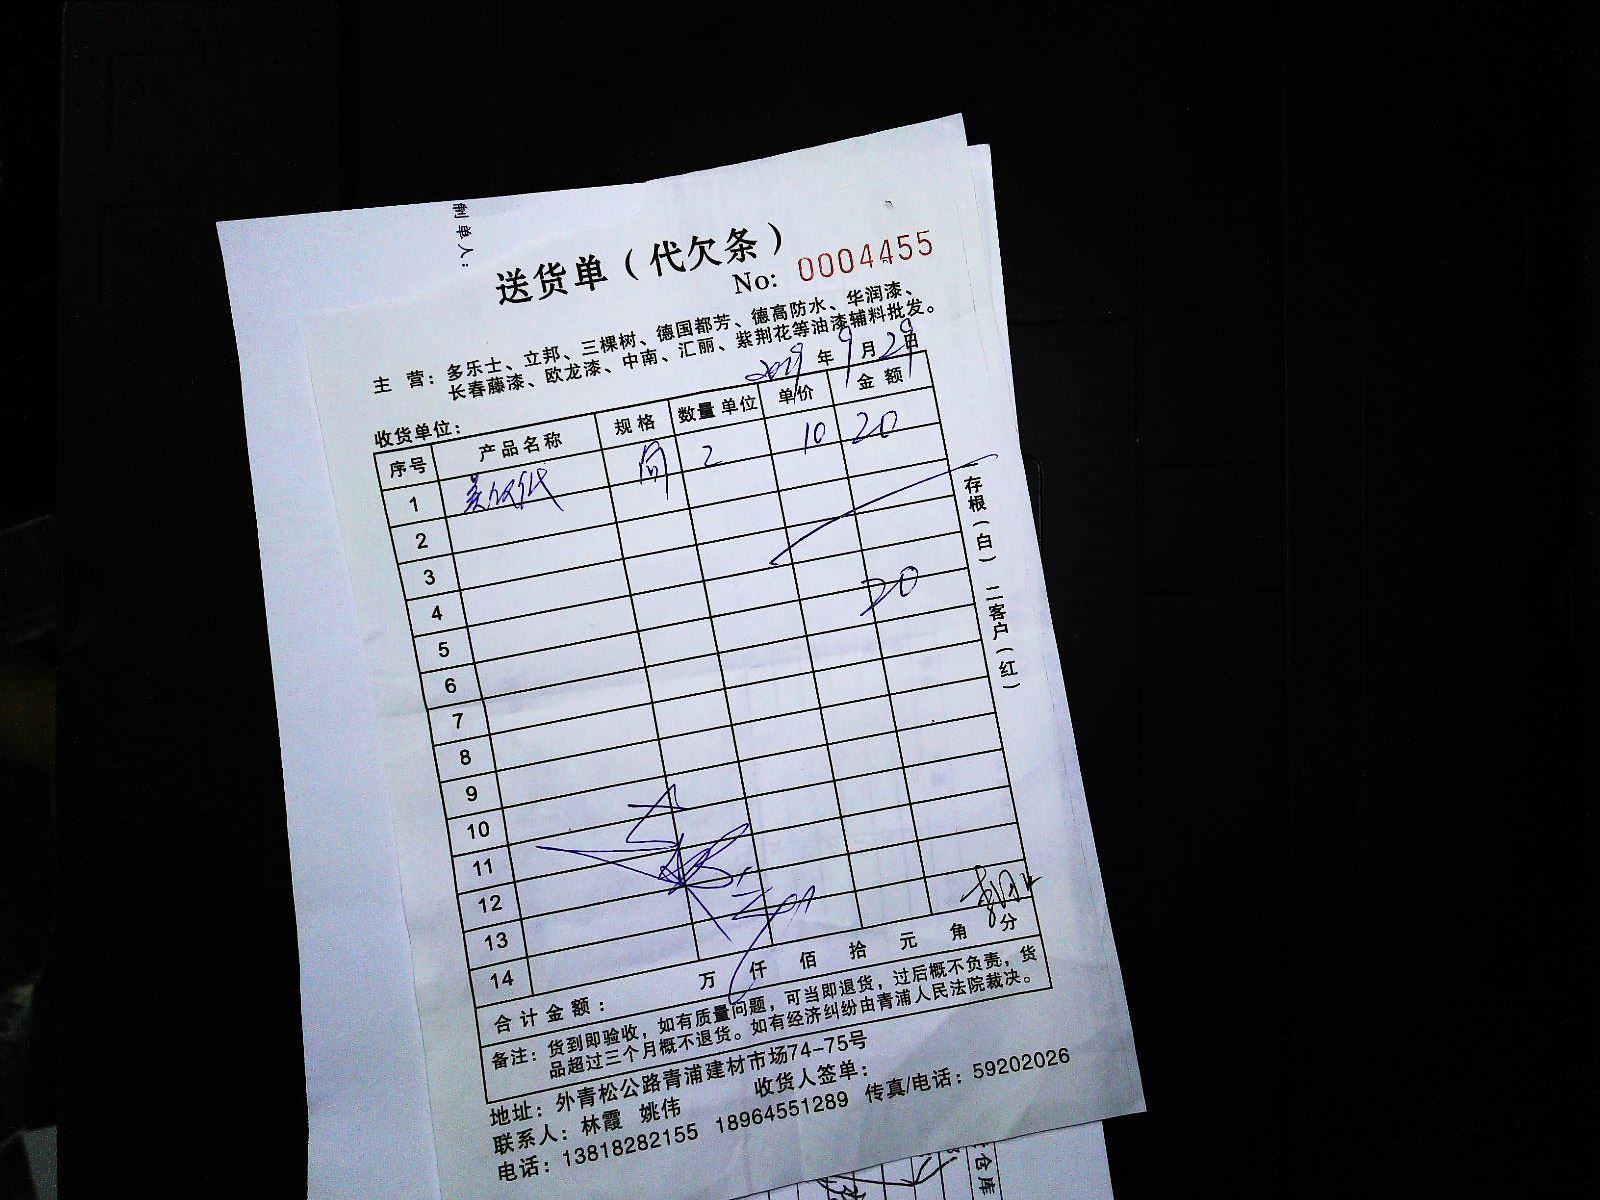 制单人：
送货单（代欠条）
No: 0004455
主 营：多乐士、立邦、三棵树、德国都芳、德高防水、华润漆、
长春藤漆、欧龙漆、中南、汇丽、紫荆花等油漆辅料批发。
2019 年 9 月 29 日
收货单位：
序号 产品名称 规格 数量 单位 单价 金额
1 美纹纸 2 10 20
2
3
4 20
5
6
7
8
9
10
11
12
13
14
合计金额： 万 仟 佰 拾 元 角 分
备注：货到即验收，如有质量问题，可当即退货，过后概不负责，货
品超过三个月概不退货。如有经济纠纷由青浦人民法院裁决。
地址：外青松公路青浦建材市场74-75号
联系人：林霞 姚伟 收货人签单：
电话：13818282155 18964551289 传真/电话：59202026
存根（白） 二客户（红）
仓库